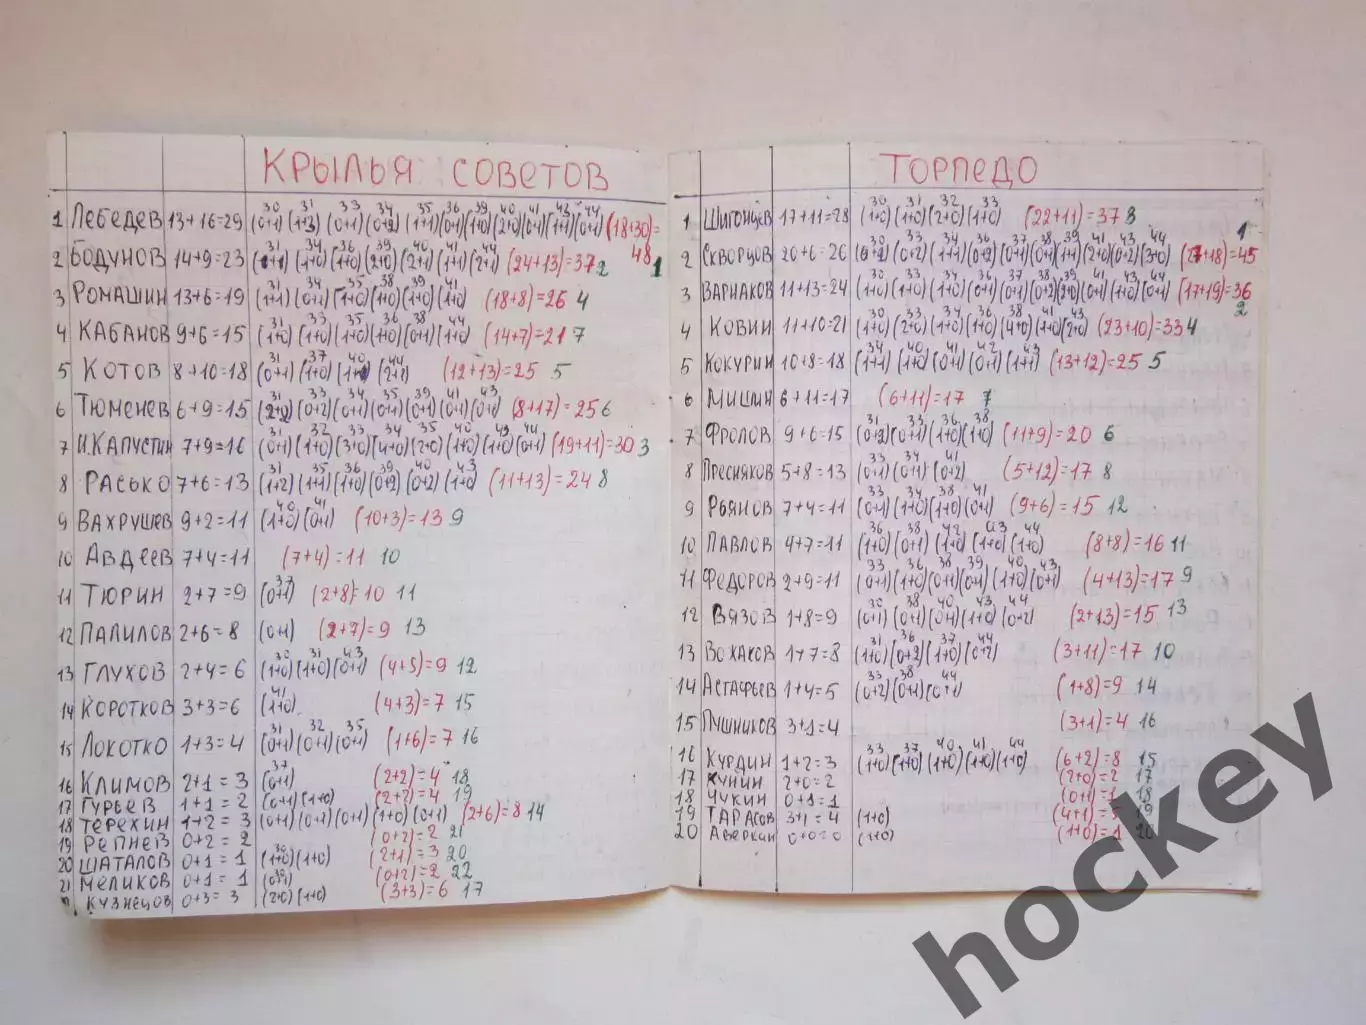 КРЫЛЬЯ СОВЕТОВ
1 ЛЕБЕДЕВ 13+16=29 (0+1)(1+3)(0+1)(0+2)(1+1)(0+1)(1+0)(2+0)(0+1)(1+1)(0+1) (18+30)= 48 1
2 БОДУНОВ 14+9=23 (1+1)(0+1)(1+0)(2+0)(2+1)(1+1)(2+1) (24+13)=37 2
3 РОМАШИН 13+6=19 (1+1)(0+1)(1+0)(1+0)(1+0)(1+0) (18+8)=26 4
4 КАБАНОВ 9+6=15 (1+0)(1+0)(1+0)(1+0)(0+1)(1+0) (14+7)=21 7
5 КОТОВ 8+10=18 (0+1)(1+0)(2+1) (12+13)=25 5
6 ТЮМЕНЕВ 6+9=15 (2+2)(0+2)(0+1)(0+1)(0+1)(0+1)(0+1) (8+17)=25 6
7 И.КАПУСТИН 7+9=16 (0+1)(1+0)(3+0)(4+0)(2+0)(1+0)(1+0)(0+1) (19+11)=30 3
8 РАСЬКО 7+6=13 (1+2)(1+1)(1+0)(0+2)(0+2)(1+0) (11+13)=24 8
9 ВАХРУШЕВ 9+2=11 (1+0)(0+1) (10+3)=13 9
10 АВДЕЕВ 7+4=11 (7+4)=11 10
11 ТЮРИН 2+7=9 (0+1) (2+8)=10 11
12 ПАЛИЛОВ 2+6=8 (0+1) (2+7)=9 13
13 ГЛУХОВ 2+4=6 (1+0)(1+0)(0+1) (4+5)=9 12
14 КОРОТКОВ 3+3=6 (1+0) (4+3)=7 15
15 ЛОКОТКО 1+3=4 (0+1)(0+1)(0+1) (1+6)=7 16
16 КЛИМОВ 2+1=3 (0+1) (2+2)=4 18
17 ГУРЬЕВ 1+1=2 (0+1)(1+0) (2+2)=4 19
18 ТЕРЕХИН 1+2=3 (0+1)(0+1)(0+1)(1+0)(0+1) (2+6)=8 14
19 РЕПНЕВ 0+2=2 (0+2)=2 21
20 ШАТАЛОВ 0+1=1 (1+0)(1+0) (2+1)=3 20
21 МЕЛИКОВ 0+1=1 (0+1) (0+2)=2 22
КУЗНЕЦОВ 0+3=3 (2+0)(1+0) (3+3)=6 17
ТОРПЕДО
1 ШИГОНЦЕВ 17+11=28 (1+0)(1+0)(2+0)(1+0) (22+11)=37 8
2 СКВОРЦОВ 20+6=26 (0+2)(0+2)(1+1)(0+2)(0+1)(0+1)(1+1)(2+0)(0+2)(3+0) (27+18)=45 1
3 ВАРНАКОВ 11+13=24 (1+0)(1+0)(1+0)(0+1)(0+1)(0+2)(2+0)(0+1)(1+0)(1+0)(0+1) (17+19)=36 2
4 КОВИН 11+10=21 (1+0)(2+0)(1+0)(1+0)(4+0)(1+0)(2+0) (23+10)=33 4
5 КОКУРИН 10+8=18 (1+1)(1+0)(0+1)(0+1)(1+1) (13+12)=25 5
6 МИШИН 6+11=17 (6+11)=17 7
7 ФРОЛОВ 9+6=15 (0+2)(0+1)(1+0)(1+0) (11+9)=20 6
8 ПРЕСНЯКОВ 5+8=13 (0+1)(0+1)(0+2) (5+12)=17 8
9 РЬЯНОВ 7+4=11 (0+1)(1+0)(1+0)(0+1) (9+6)=15 12
10 ПАВЛОВ 4+7=11 (1+0)(0+1)(1+0)(1+0)(1+0) (8+8)=16 11
11 ФЕДОРОВ 2+9=11 (0+1)(1+0)(0+1)(0+1)(1+0)(0+1) (4+13)=17 9
12 ВЯЗОВ 1+8=9 (0+1)(0+1)(0+1)(1+0)(0+2) (2+13)=15 13
13 ВОХАКОВ 1+7=8 (1+0)(0+2)(1+0)(0+2) (3+11)=17 10
14 АСТАФЬЕВ 1+4=5 (0+2)(0+1)(0+1) (1+8)=9 14
15 ПУШНИКОВ 3+1=4 (3+1)=4 16
16 КУРДИН 1+2=3 (1+0)(1+0)(1+0)(1+0)(1+0) (6+2)=8 15
17 КУНИН 2+0=2 (2+0)=2 17
18 ЧУКИН 0+1=1 (0+1)=1 18
19 ТАРАСОВ 3+1=4 (1+0) (4+1)=5 19
20 АВЕРКИН 0+0=0 (1+0) (1+0)=1 20
hockey